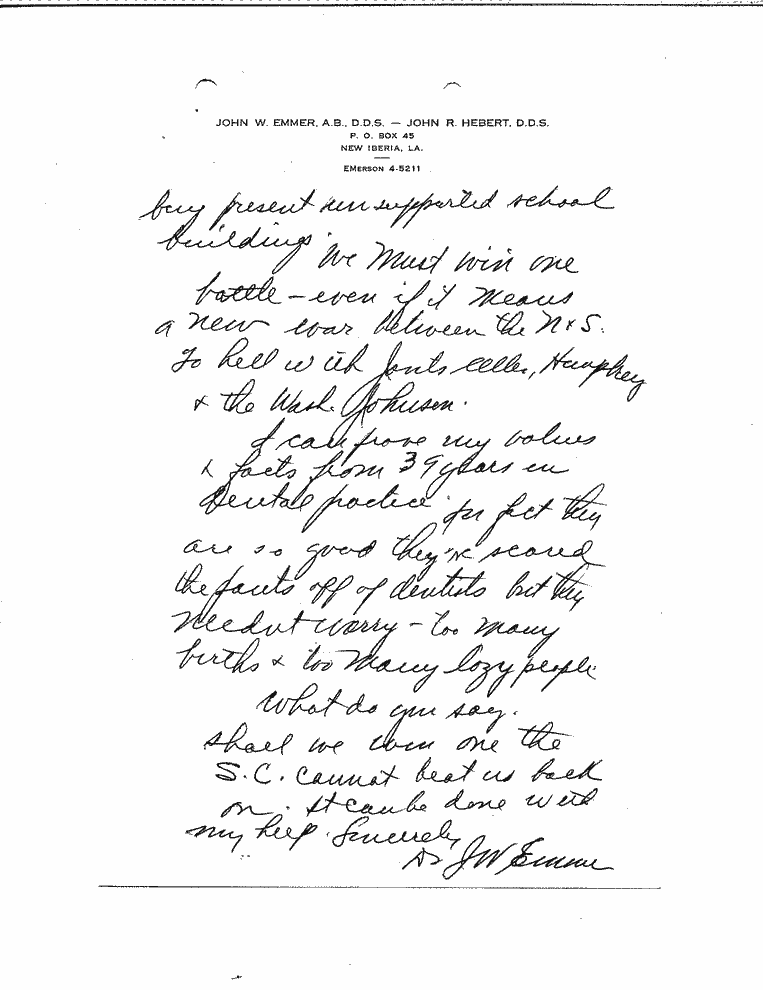 JOHN W. EMMER, A.B., D.D.S. — JOHN R. HEBERT, D.D.S.
P. O. BOX 45
NEW IBERIA, LA.
EMERSON 4-5211
buy present unsupported school
buildings. We Must win one
battle – even if it Means
a new war between the N & S.
To hell with Celler, Humphrey
& the Wash. Johnson.
I can prove my values
& facts from 39 years in
Dental practice. In fact they
are so good they've scared
the pants off of dentists but they
Needn't worry – too many
births & too Many lazy people.
What do you say.
shall we win one the
S.C. cannot beat us back
on. It can be done with
my help. Sincerely,
Dr JW Emmer